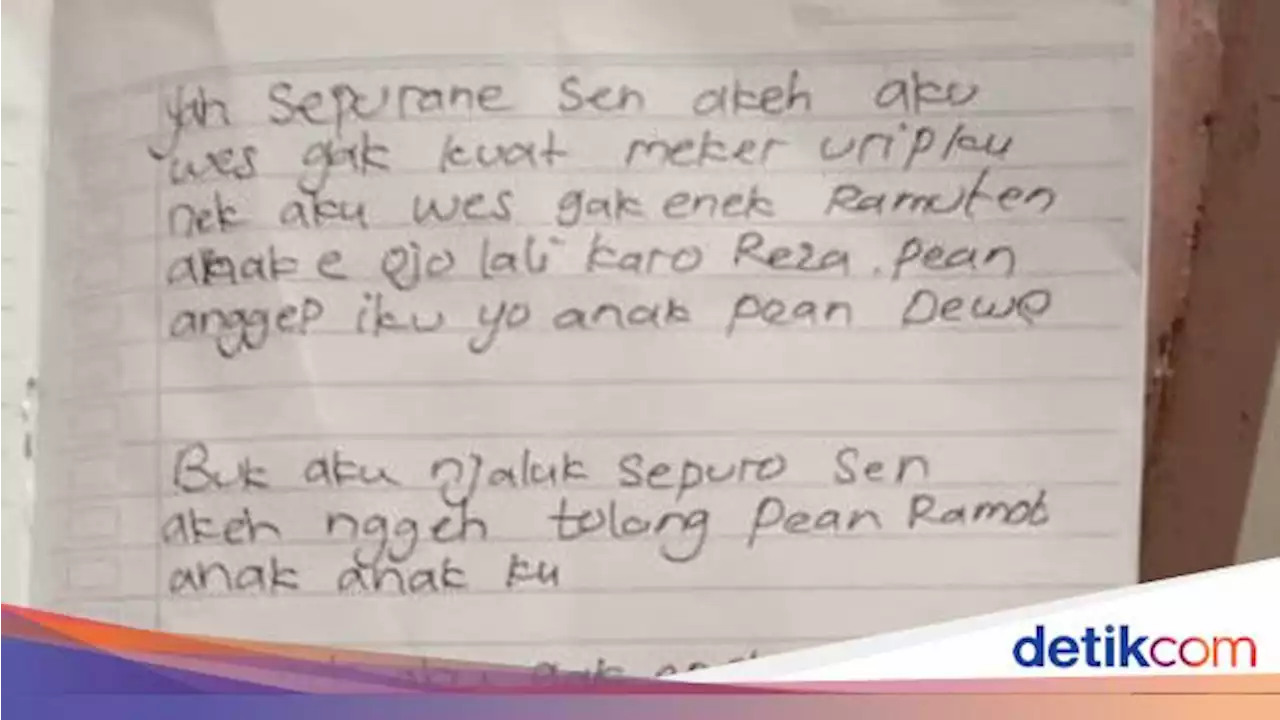 Yah Sepurane Sen akeh aku
wes gak kuat meker uripku
nek aku wes gak enek Ramuten
anak e ojo lali karo Reza. pean
anggep iku yo anak pean Dewe
Buk aku njaluk sepuro Sen
akeh nggeh tolong pean Ramot
anak anak ku
aku gak
detikcom